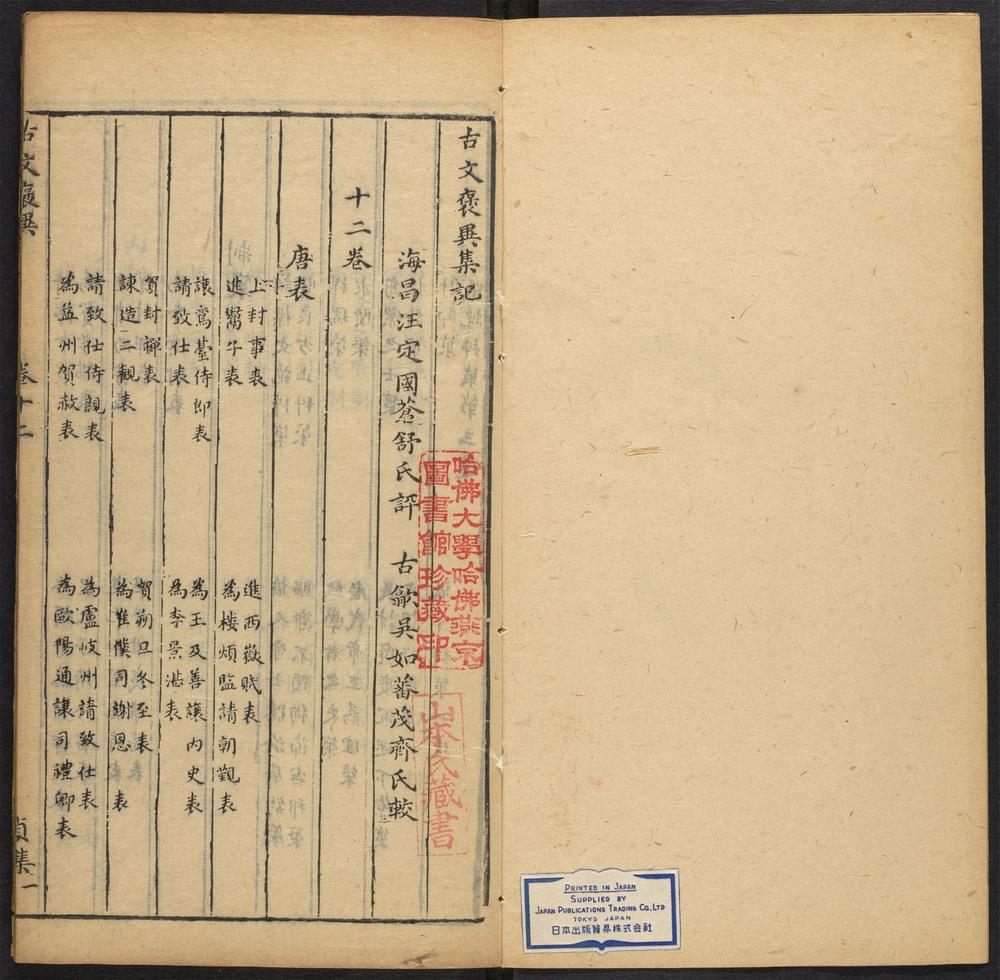 古文褒異集記
海昌汪定國蒼舒氏評　古歙吳如蕃茂齊氏較
十二卷
唐表
上封事表
進西嶽賦表
進鬻子表
為樓煩監請朝覲表
讓鸞臺侍郎表
為王及善讓內史表
請致仕表
為李景諶表
賀封禪表
賀朔旦冬至表
諫造二觀表
為崔僕同謝恩表
請致仕侍親表
為盧岐州請致仕表
為益州賀赦表
為歐陽通讓司禮卿表
古文褒異
卷十二
貞集一
哈佛大學哈佛燕京
圖書館珍藏印
山本氏藏書
PRINTED IN JAPAN
SUPPLIED BY
JAPAN PUBLICATIONS TRADING CO., LTD
TOKYO JAPAN
日本出版貿易株式会社